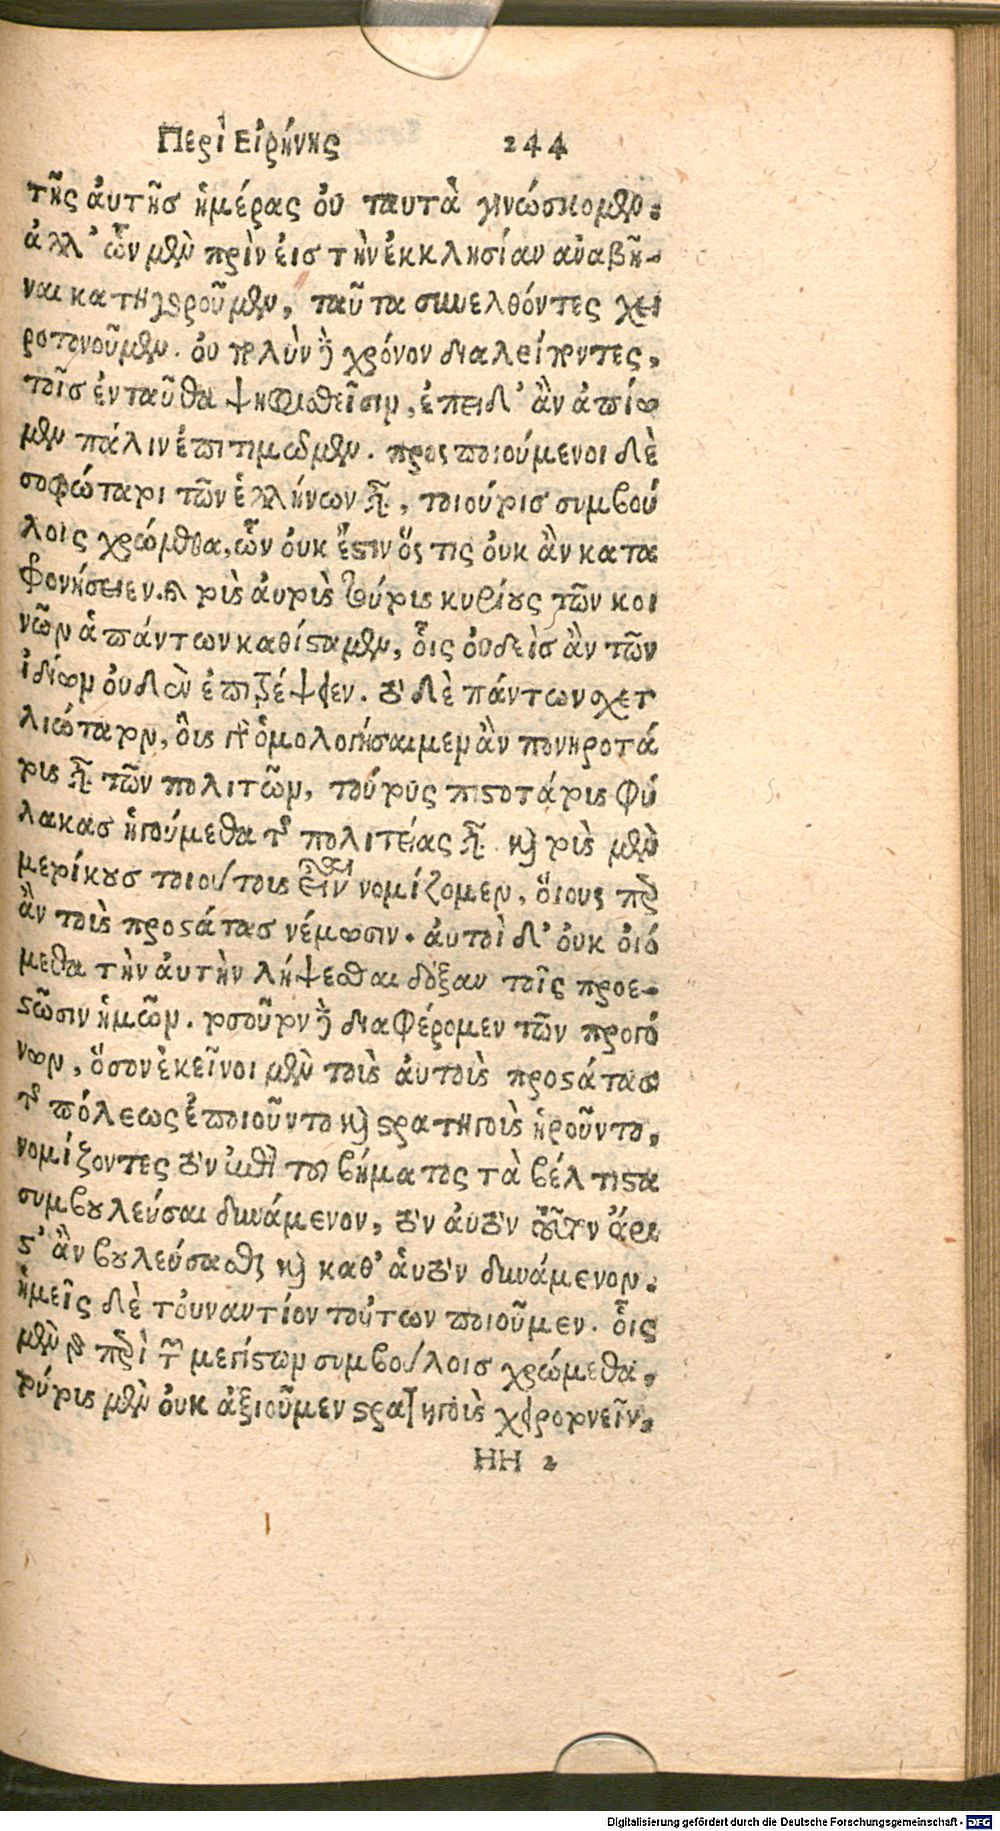 Περὶ Εἰρήνης 244
τῆς ἀυτῆσ ἡμέρας ὀυ ταυτὰ γινώσκομεν.
ἀλλ' ὧν μὲν πρὶν ἐισ τὴν ἐκκλησίαν αὐαβῆ-
ναι κατηγοροῦμεν, ταῦτα συνελθόντες χει
ροτονοῦμεν. ὀυ πολὺν δὲ χρόνον διαλείποντες,
τοῖσ ἐνταῦθα ψηφισθεῖσιν, ἐπειδ' ἂν ἀπίω
μεν πάλιν ἐπιτιμῶμεν. προςποιούμενοι δὲ
σοφώτατοι τῶν ἑλλήνων εἶναι, τοιούτοισ συμβού
λοις χρώμεθα, ὧν ὀυκ ἔστιν ὅς τις ὀυκ ἂν κατα
φρονήσειεν. καὶ τοὺς ἀυτοὺς τούτους κυρίους τῶν κοι
νῶν ἁπάντων καθίσταμεν, οἷς ὀυδεὶσ ἂν τῶν
ἰδίων ὀυδὲν ἐπιτρέψειεν. ὃ δὲ πάντων σχετ
λιώτατον, οὓς γὰρ ὁμολογήσαιμεν ἂν πονηροτά
τους εἶναι τῶν πολιτῶν, τούτους πιστοτάτους φύ
λακασ ἡγούμεθα τῆς πολιτείας εἶναι. καὶ τοὺς μὲν
μετοίκουσ τοιούτους εἶναι νομίζομεν, ὅιους περ
ἂν τοὺς προστάτασ νέμωσιν. ἀυτοὶ δ' ὀυκ ὀιό
μεθα τὴν ἀυτὴν λήψεσθαι δόξαν τοῖς προε-
στῶσιν ἡμῶν. τοσοῦτον δὲ διαφέρομεν τῶν προγό
νων, ὅσον ἐκεῖνοι μὲν τοὺς ἀυτοὺς προστάτασ
τῆς πόλεως ἐποιοῦντο καὶ στρατηγοὺς ἡροῦντο,
νομίζοντες τὸν ἐπὶ τοῦ βήματος τὰ βέλτιστα
συμβουλεύσαι δυνάμενον, τὸν ἀυτὸν τοῦτον ἄρι
στ' ἂν βουλεύσασθαι καὶ καθ' ἁυτὸν δυνάμενον.
ἡμεῖς δὲ τὀυναντίον τούτων ποιοῦμεν. οἷς
μὲν γὰρ περὶ τῶν μεγίστων συμβούλοισ χρώμεθα,
τούτους μὲν ὀυκ ἀξιοῦμεν στρατηγοὺς χειροτονεῖν,
HH 2
Digitalisierung gefördert durch die Deutsche Forschungsgemeinschaft - DFG